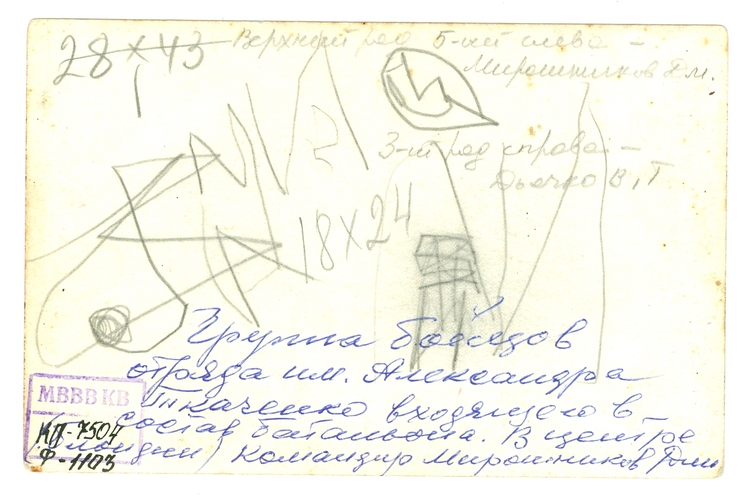 28 х 43
Верхний ряд 5-ый слева –
Мирошников Дм.
3-ий ряд справа –
Дьячко В, Т
18 х 24
Группа бойцов
отряда им. Александра
Ткаченко входящего в
состав батальона. В центре
командир Мирошников Дми
МВВВ КВ
КП-7504
Ф-1103